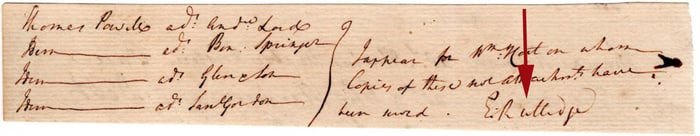 Thomas Powell ads. Andw Lord
Idem ads. Ben. Springer
Idem ads Glen & Son
Idem ads Saml Gordon
I appear for Wm Hort on whom
Copies of these have
been served. E: Rutledge